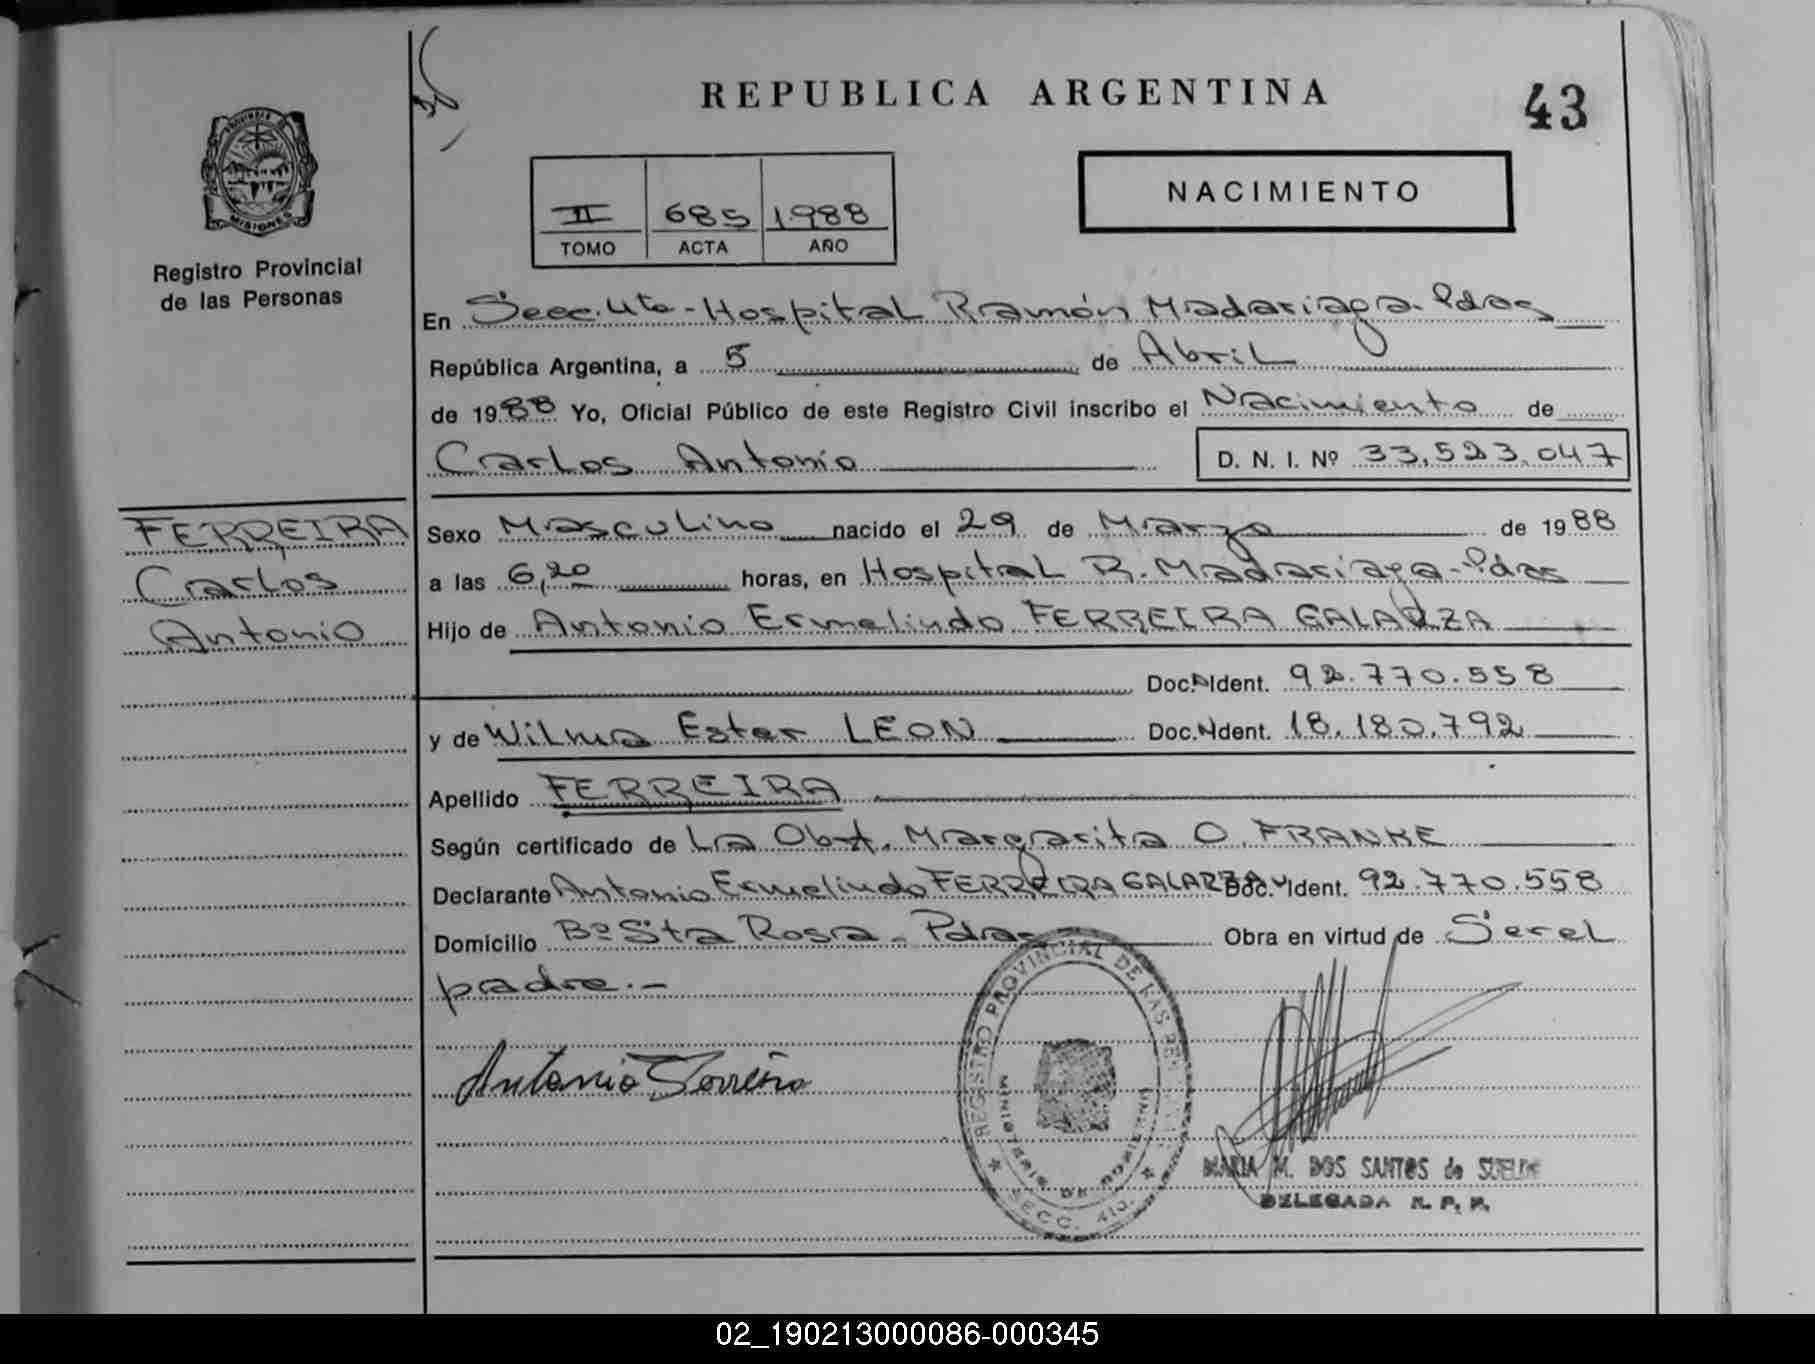 REPUBLICA ARGENTINA
43
PROVINCIA DE
MISIONES
Registro Provincial
de las Personas
II 685 1988
TOMO ACTA AÑO
NACIMIENTO
En Secc. 4ta - Hospital Ramón Madariaga - Pdas
República Argentina, a 5 de Abril
de 1988 Yo, Oficial Público de este Registro Civil inscribo el Nacimiento de
Carlos Antonio D. N. I. Nº 33.523.047
FERREIRA
Carlos
Antonio
Sexo Masculino nacido el 29 de Marzo de 1988
a las 6,20 horas, en Hospital R. Madariaga - Pdas
Hijo de Antonio Ermelindo FERREIRA GALARZA
Doc. Ident. 92.770.558
y de Wilma Ester LEON Doc. Ident. 18.180.792
Apellido FERREIRA
Según certificado de La Obst. Margarita O. FRANKE
Declarante Antonio Ermelindo FERREIRA GALARZA Doc. Ident. 92.770.558
Domicilio Bº Sta Rosa - Pdas Obra en virtud de Ser el
padre.-
Antonio Ferreira
REGISTRO PROVINCIAL DE LAS PER
MINISTERIO DE GOBIERNO
SECC. 4TO.
MARIA M. DOS SANTOS de
DELEGADA R. P. P.
02_190213000086-000345